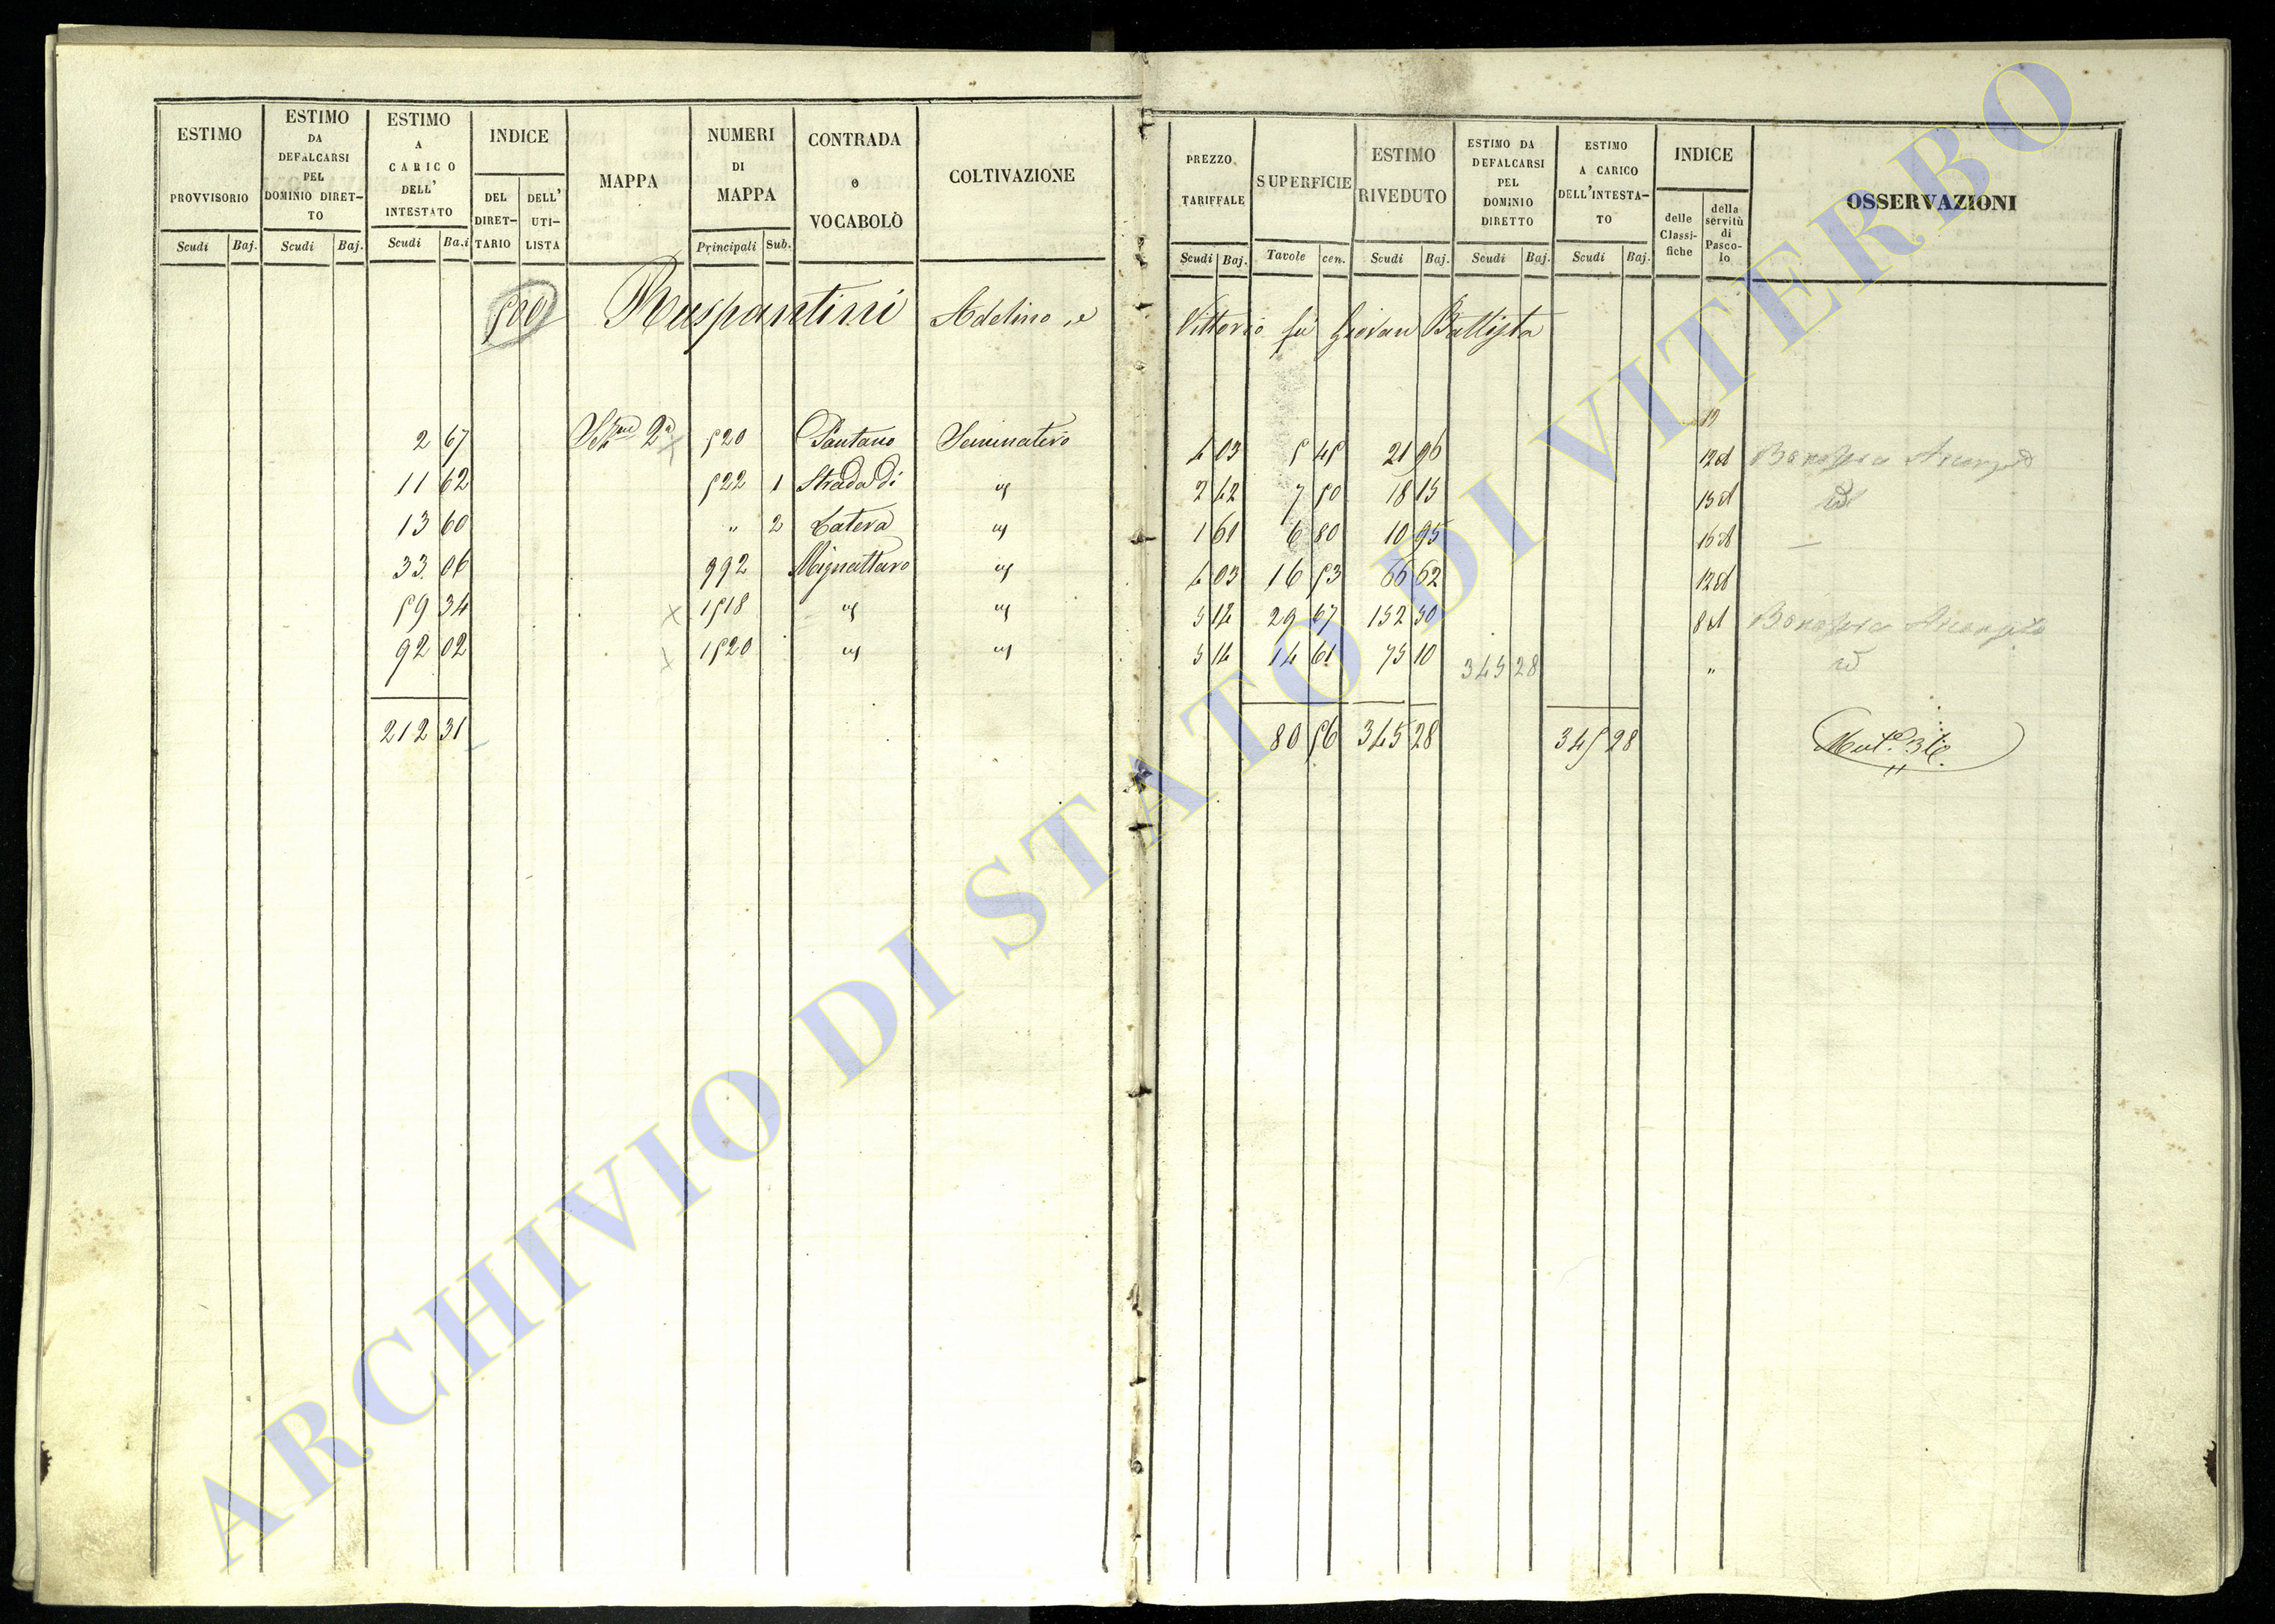 ESTIMO PROVVISORIO Scudi Baj.
ESTIMO DA DEFALCARSI PEL DOMINIO DIRET-TO Scudi Baj.
ESTIMO A CARICO DELL' INTESTATO Scudi Ba.i
INDICE DEL DIRET-TARIO DELL' UTI-LISTA
MAPPA
NUMERI DI MAPPA Principali Sub.
CONTRADA o VOCABOLO
COLTIVAZIONE
PREZZO TARIFFALE Scudi Baj.
SUPERFICIE Tavole cen.
ESTIMO RIVEDUTO Scudi Baj.
ESTIMO DA DEFALCARSI PEL DOMINIO DIRETTO Scudi Baj.
ESTIMO A CARICO DELL'INTESTA-TO Scudi Baj.
INDICE delle Classi-fiche della servitù di Pasco-lo
OSSERVAZIONI
500 Ruspantini Adelino e Vittorio fu Giovan Battista
12
2 67 Sez.ne 2a 520 Pantano Seminativo 4 03 5 45 21 96 12 d
11 62 522 1 Strada di " 2 42 7 50 18 15 15 d id
13 60 " 2 Latera " 1 61 6 80 10 95 16 d —
33 06 992 Mignattaro " 4 03 16 53 66 62 12 d
59 34 1518 " " 5 14 29 67 152 50 8 d
92 02 1520 " " 5 14 14 61 75 10 345 28 " id
212 31 80 56 345 28 345 28
ARCHIVIO DI STATO DI VITERBO